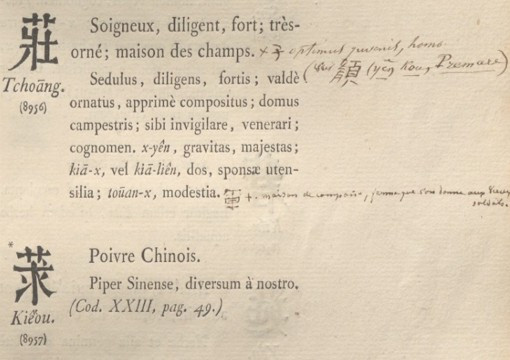 莊 Soigneux, diligent, fort; très-
orné; maison des champs. × 子 optimus juvenis, homo
Tchoāng. Sedulus, diligens, fortis; valdè (顏 (yên Kou, Premare)
(8956) ornatus, apprimè compositus; domus
campestris; sibi invigilare, venerari;
cognomen. x-yên, gravitas, majestas;
kiā-x, vel kiā-liên, dos, sponsæ uten-
silia; touān-x, modestia. + maison de campagne, que l'on donne aux
soldats.
* Poivre Chinois.
Piper Sinense, diversum à nostro.
Kieôu. (Cod. XXIII, pag. 49.)
(8957)